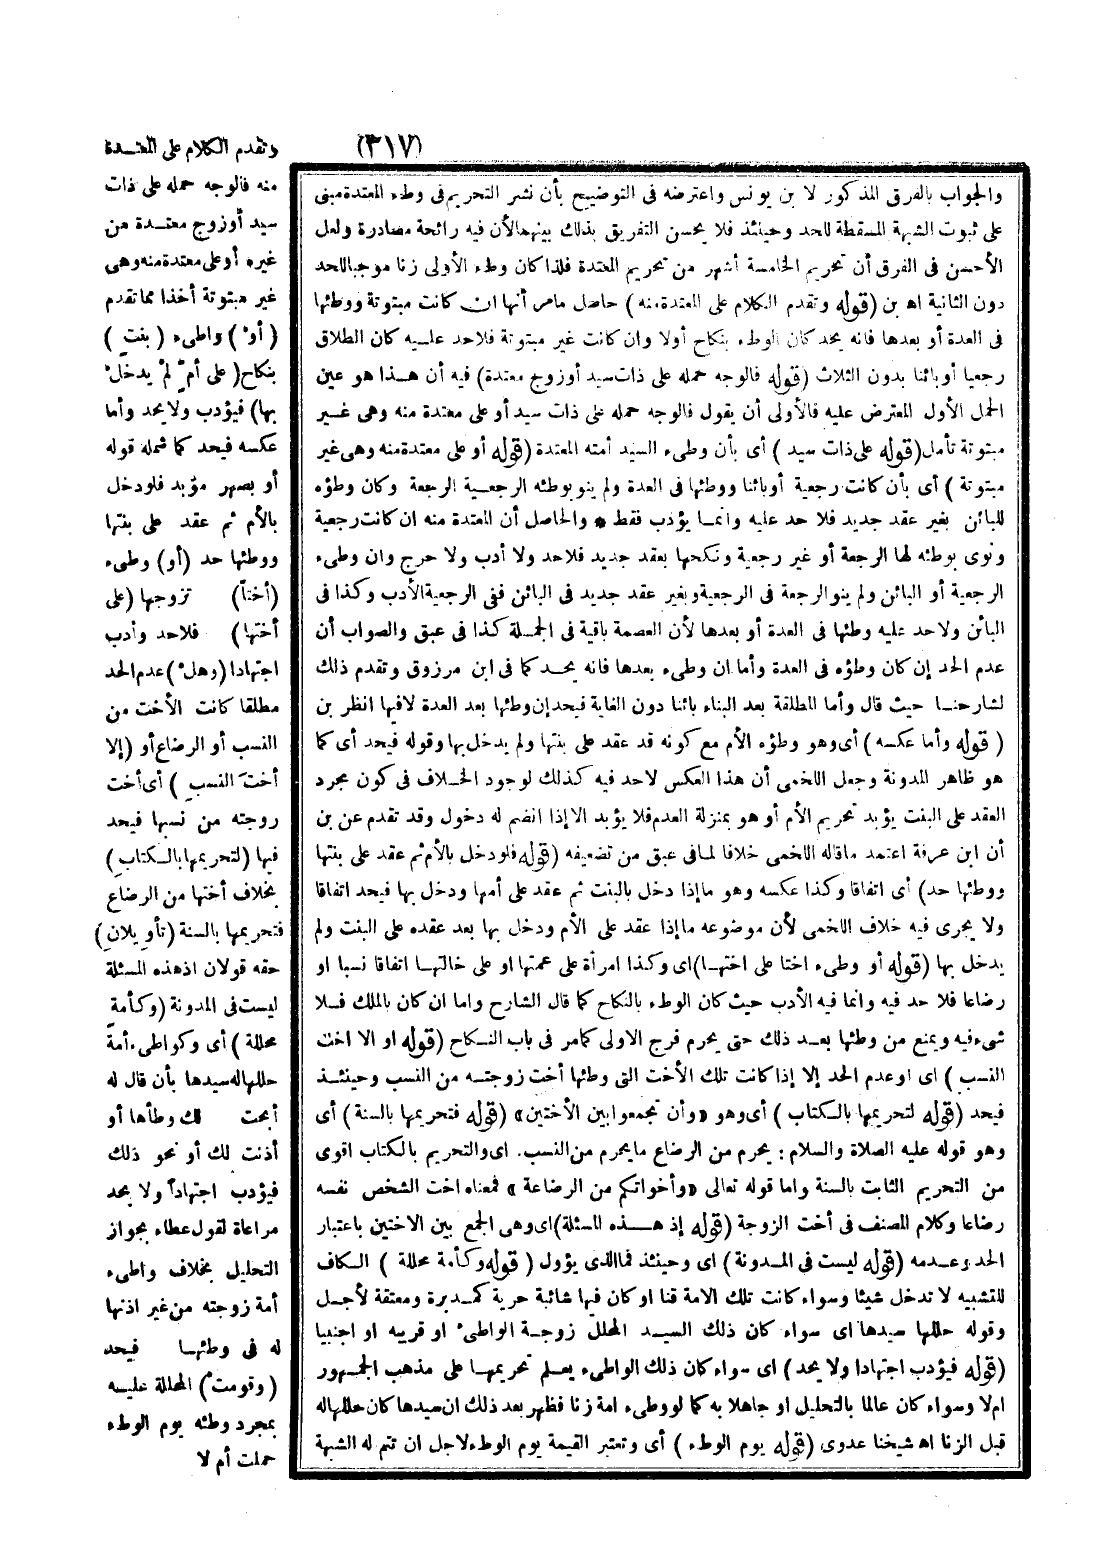 (٣١٧)
والجواب بالفرق المذكور لا بن يونس واعترضه فى التوضيح بأن نشر التحريم فى وطء المعتدة مبنى
على ثبوت الشبهة المسقطة للحد وحينئذ فلا يحسن التفريق بذلك بينهما لأن فيه رائحة مصادرة ولعل
الأحسن فى الفرق أن تحريم الخامسة أشهر من تحريم المعتدة فلذا كان وطء الأولى زنا موجبا للحد
دون الثانية اه بن (قوله وتقدم الكلام على المعتدة منه) حاصل مامر أنها ان كانت مبتوتة ووطئها
فى العدة أو بعدها فانه يحد كان الوطء بنكاح أولا وان كانت غير مبتوتة فلاحد عليه كان الطلاق
رجعيا أوبائنا بدون الثلاث (قوله فالوجه حمله على ذات سيد أوزوج معتدة) فيه أن هذا هو عين
الحمل الأول المعترض عليه فالأولى أن يقول فالوجه حمله على ذات سيد أو على معتدة منه وهى غير
مبتوتة تأمل (قوله على ذات سيد) أى بأن وطىء السيد أمته المعتدة (قوله أو على معتدة منه وهى غير
مبتوتة) أى بأن كانت رجعية أوبائنا ووطئها فى العدة ولم ينو بوطئه الرجعية الرجعة وكان وطؤه
للبائن بغير عقد جديد فلا حد عليه وانما يؤدب فقط * والحاصل أن المعتدة منه ان كانت رجعية
ونوى بوطئه لها الرجعة أو غير رجعية ونكحها بعقد جديد فلاحد ولا أدب ولا حرج وان وطىء
الرجعية أو البائن ولم ينو الرجعة فى الرجعية وبغير عقد جديد فى البائن ففى الرجعية الأدب وكذا فى
البائن ولاحد عليه وطئها فى العدة أو بعدها لأن العصمة باقية فى الجملة كذا فى عبق والصواب أن
عدم الحد إن كان وطؤه فى العدة وأما ان وطىء بعدها فانه يحد كما فى ابن مرزوق وتقدم ذلك
لشارحنا حيث قال وأما المطلقة بعد البناء بائنا دون الغاية فيحد إن وطئها بعد العدة لافيها انظر بن
(قوله وأما عكسه) أى وهو وطؤه الأم مع كونه قد عقد على بنتها ولم يدخل بها وقوله فيحد أى كما
هو ظاهر المدونة وجعل اللخمى أن هذا العكس لاحد فيه كذلك لوجود الخلاف فى كون مجرد
العقد على البنت يؤبد تحريم الأم أو هو بمنزلة العدم فلا يؤبد الا إذا انضم له دخول وقد تقدم عن بن
أن ابن عرفة اعتمد ماقاله اللخمى خلافا لما فى عبق من تضعيفه (قوله فلو دخل بالأم ثم عقد على بنتها
ووطئها حد) أى اتفاقا وكذا عكسه وهو ما إذا دخل بالبنت ثم عقد على أمها ودخل بها فيحد اتفاقا
ولا يجرى فيه خلاف اللخمى لأن موضوعه ما إذا عقد على الأم ودخل بها بعد عقده على البنت ولم
يدخل بها (قوله أو وطىء اختا على اختها) اى وكذا امرأة على عمتها او على خالتها اتفاقا نسبا او
رضاعا فلا حد فيه وانما فيه الأدب حيث كان الوطء بالنكاح كما قال الشارح واما ان كان بالملك فلا
شىء فيه ويمنع من وطئها بعد ذلك حتى يحرم فرج الاولى كمامر فى باب النكاح (قوله او الا اخت
النسب) اى او عدم الحد إلا إذا كانت تلك الأخت التى وطئها أخت زوجته من النسب وحينئذ
فيحد (قوله لتحريمها بالكتاب) أى وهو «وأن تجمعوا بين الأختين» (قوله فتحريمها بالسنة) أى
وهو قوله عليه الصلاة والسلام: يحرم من الرضاع ما يحرم من النسب. اى والتحريم بالكتاب اقوى
من التحريم الثابت بالسنة واما قوله تعالى «وأخواتكم من الرضاعة» فمعناه اخت الشخص نفسه
رضاعا وكلام المصنف فى أخت الزوجة (قوله إذ هذه المسئلة) اى وهى الجمع بين الاختين باعتبار
الحد وعدمه (قوله ليست فى المدونة) اى وحينئذ فما الذى يؤول (قوله وكأمة محللة) الكاف
للتشبيه لا تدخل شيئا وسواء كانت تلك الامة قنا او كان فيها شائبة حرية كمدبرة ومعتقة لأجل
وقوله حللها سيدها اى سواء كان ذلك السيد المحلل زوجة الواطىء او قريبه او اجنبيا
(قوله فيؤدب اجتهادا ولا يحد) اى سواء كان ذلك الواطىء يعلم تحريمها على مذهب الجمهور
ام لا وسواء كان عالما بالتحليل او جاهلا به كما لو وطىء امة زنا فظهر بعد ذلك ان سيدها كان حللها له
قبل الزنا اه شيخنا عدوى (قوله يوم الوطء) أى وتعتبر القيمة يوم الوطء لاجل ان تتم له الشبهة
وتقدم الكلام على المعتدة
منه فالوجه حمله على ذات
سيد أوزوج معتدة من
غيره أو على معتدة منه وهى
غير مبتوتة أخذا مما تقدم
(أو) واطىء (بنت)
بنكاح (على أم لم يدخل
بها) فيؤدب ولا يحد وأما
عكسه فيحد كما شمله قوله
أو بصهر مؤبد فلو دخل
بالأم ثم عقد على بنتها
ووطئها حد (أو) وطىء
(أختا) تزوجها (على
أختها) فلاحد وأدب
اجتهادا (وهل) عدم الحد
مطلقا كانت الأخت من
النسب أو الرضاع أو (إلا
أخت النسب) أى أخت
زوجته من نسبها فيحد
فيها (لتحريمها بالكتاب)
بخلاف أختها من الرضاع
فتحريمها بالسنة (تأويلان)
حقه قولان اذ هذه المسئلة
ليست فى المدونة (وكأمة
محللة) أى وكواطىء أمة
حللها له سيدها بأن قال له
أبحت لك وطأها أو
أذنت لك أو نحو ذلك
فيؤدب اجتهادا ولا يحد
مراعاة لقول عطاء بجواز
التحليل بخلاف واطىء
أمة زوجته من غير اذنها
له فى وطئها فيحد
(وقومت) المحللة عليه
بمجرد وطئه يوم الوطء
حملت أم لا